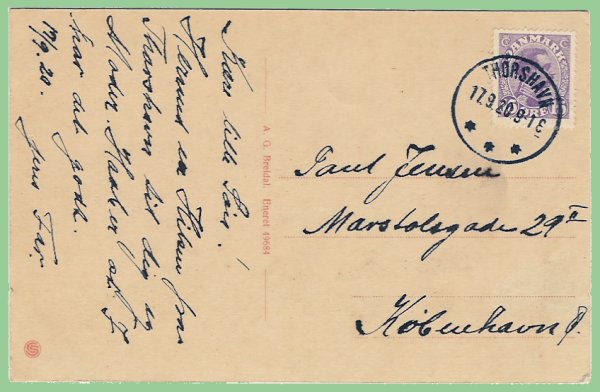 Kære lille Pär!
Herved en Hilsen fra
Thorshavn til dig og
Moder. Haaber at I
har det godt.
Jens Far.
17/9.20.
A. G. Breidal. Eneret 49684
DANMARK
ØRE
THORSHAVN
17.9.20.8-9 E
Paul Jensen
Marstalsgade 29 II
København Ø.